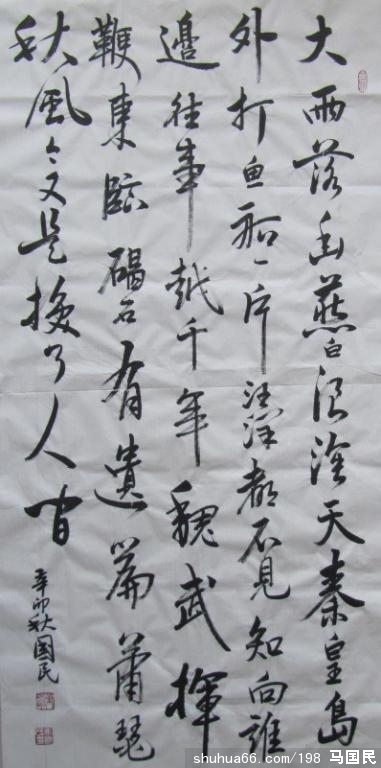 大雨落幽燕白浪滔天秦皇島
外打魚船一片汪洋都不見知向誰
邊往事越千年魏武揮
鞭東臨碣石有遺篇蕭瑟
秋風今又是換了人間
辛卯秋國民
shuhua66.com/198 马国民